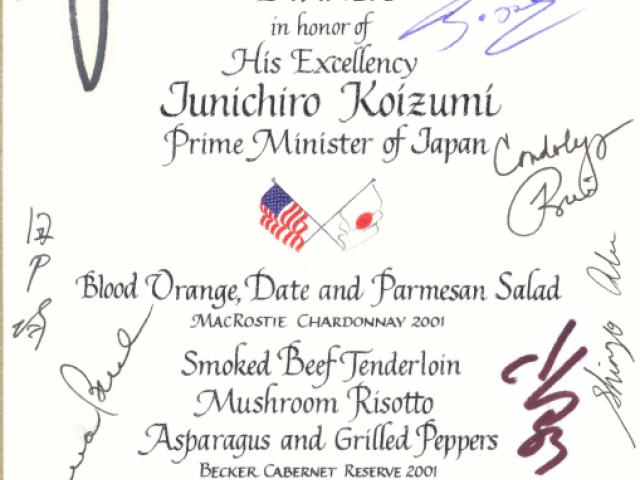 in honor of
His Excellency
Junichiro Koizumi
Prime Minister of Japan
Condoleezza
Rice
Blood Orange, Date and Parmesan Salad
MACROSTIE CHARDONNAY 2001
Shinzo Abe
Smoked Beef Tenderloin
Mushroom Risotto
Asparagus and Grilled Peppers
BECKER CABERNET RESERVE 2001